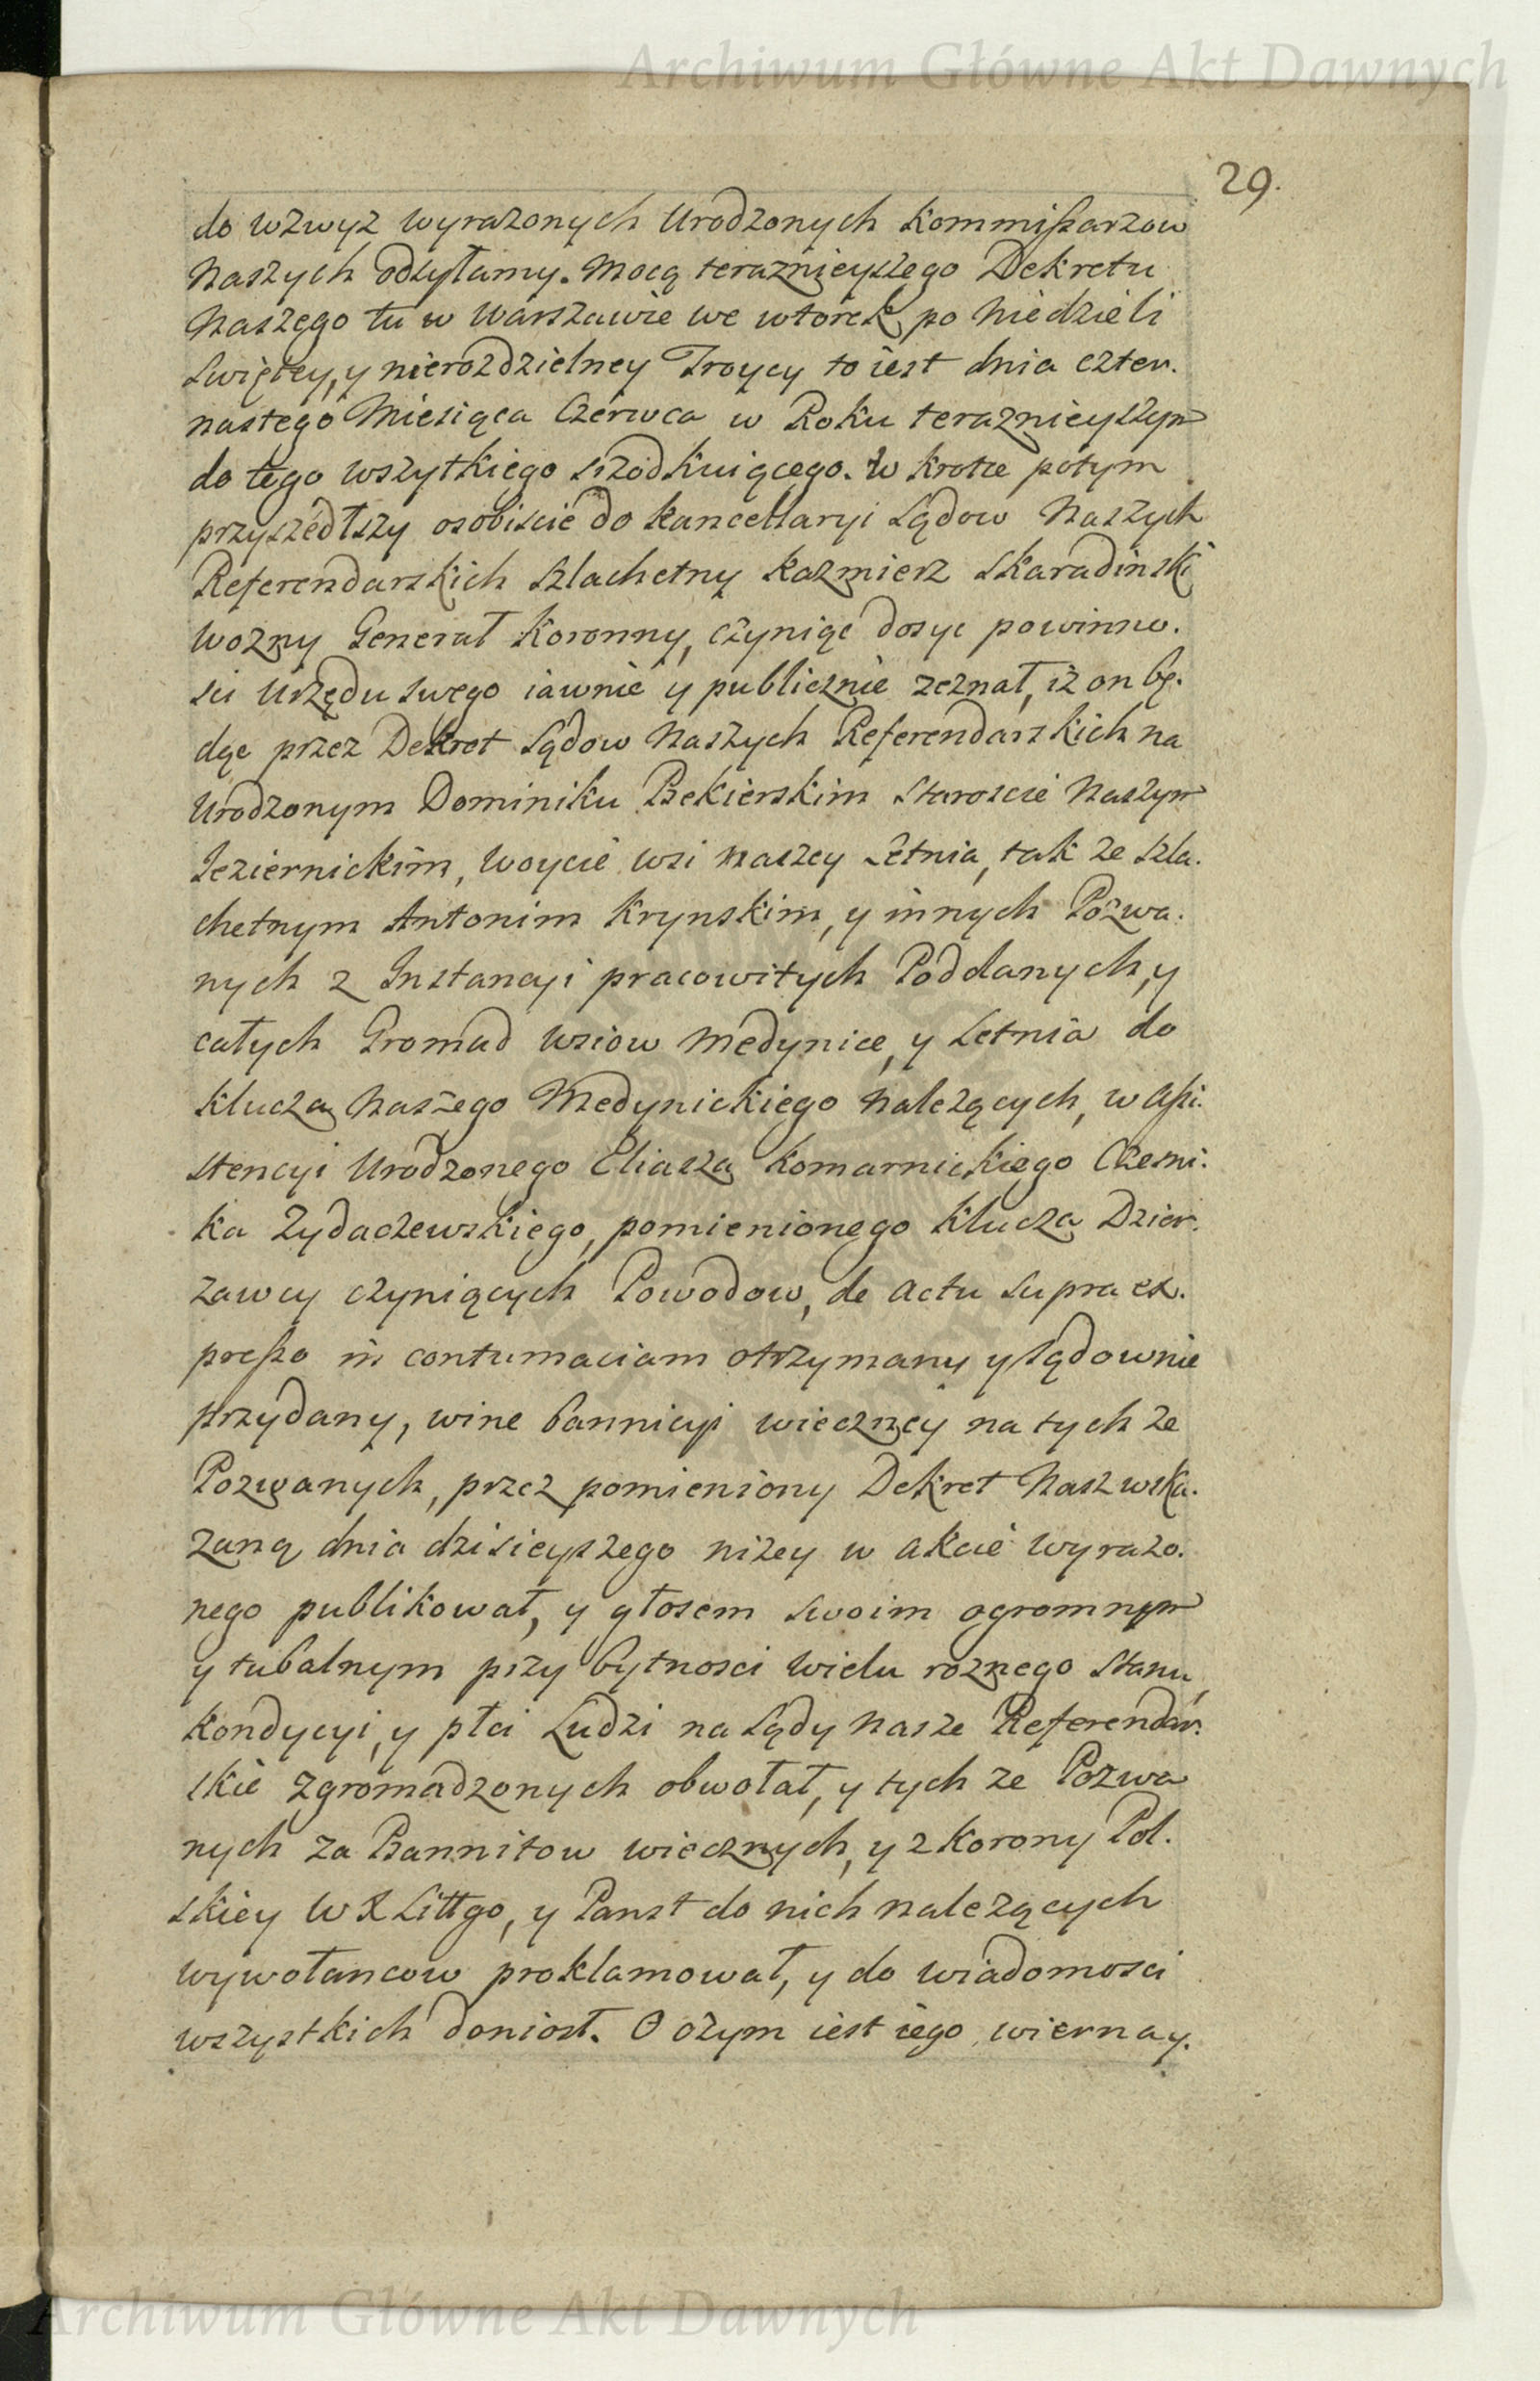 Archiwum Główne Akt Dawnych
29.
do wzwyz wyrazonych Urodzonych Kommißarzow
Naszych odsyłamy. Mocą teraznieyszego Dekretu
Naszego tu w Warszawie we wtorek po Niedzieli
Swiętey, y nierozdzielney Troycy to iest dnia czter.
nastego Miesiąca Czerwca w Roku teraznieyszym
do tego wszytkiego srzodkuiącego. W krotce potym
przyszedłszy osobiscie do Kancellaryi Sądow Naszych
Referendarskich Szlachetny Kazmierz Skaradinski
Wozny Generał Koronny, czyniąc dosyc powinno.
sci Urzędu swego iawnie y publicznie zeznał, iż on bę.
dąc przez Dekret Sądow Naszych Referendarskich na
Urodzonym Dominiku Bekierskim Staroscie Naszym
Jeziernickim, Woycie wsi Naszey Letnia, tak ze Szla.
chetnym Antonim Krynskim, y innych Pozwa.
nych z Instancyi pracowitych Poddanych, y
całych Gromad wsiow Medynice, y Letnia do
Klucza Naszego Medynickiego należących, w aßi.
stencyi Urodzonego Eliasza Komarnickiego Czesni.
ka Zydaczewskiego, pomienionego Klucza Dzier.
zawcy czyniących Powodow, de actu supra ex.
preßo in contumaciam otrzymany y sądownie
przydany, wine bannicyi wieczney na tych ze
Pozwanych, przez pomieniony Dekret Nasz wska.
zaną dnia dzisieyszego niżey w akcie wyrazo.
nego publikował, y głosem swoim ogromnym
y tubalnym przy bytnosci wielu roznego Stanu,
Kondycyi, y płci Ludzi na Sądy Nasze Referendar.
skie zgromadzonych obwołał, y tych ze Pozwa
nych za Bannitow wiecznych, y z Korony Pol.
skiey W X Littgo, y Panst do nich należących
wywołancow proklamował, y do wiadomosci
wszystkich doniosł. O czym iest iego wierna y.
Archiwum Główne Akt Dawnych